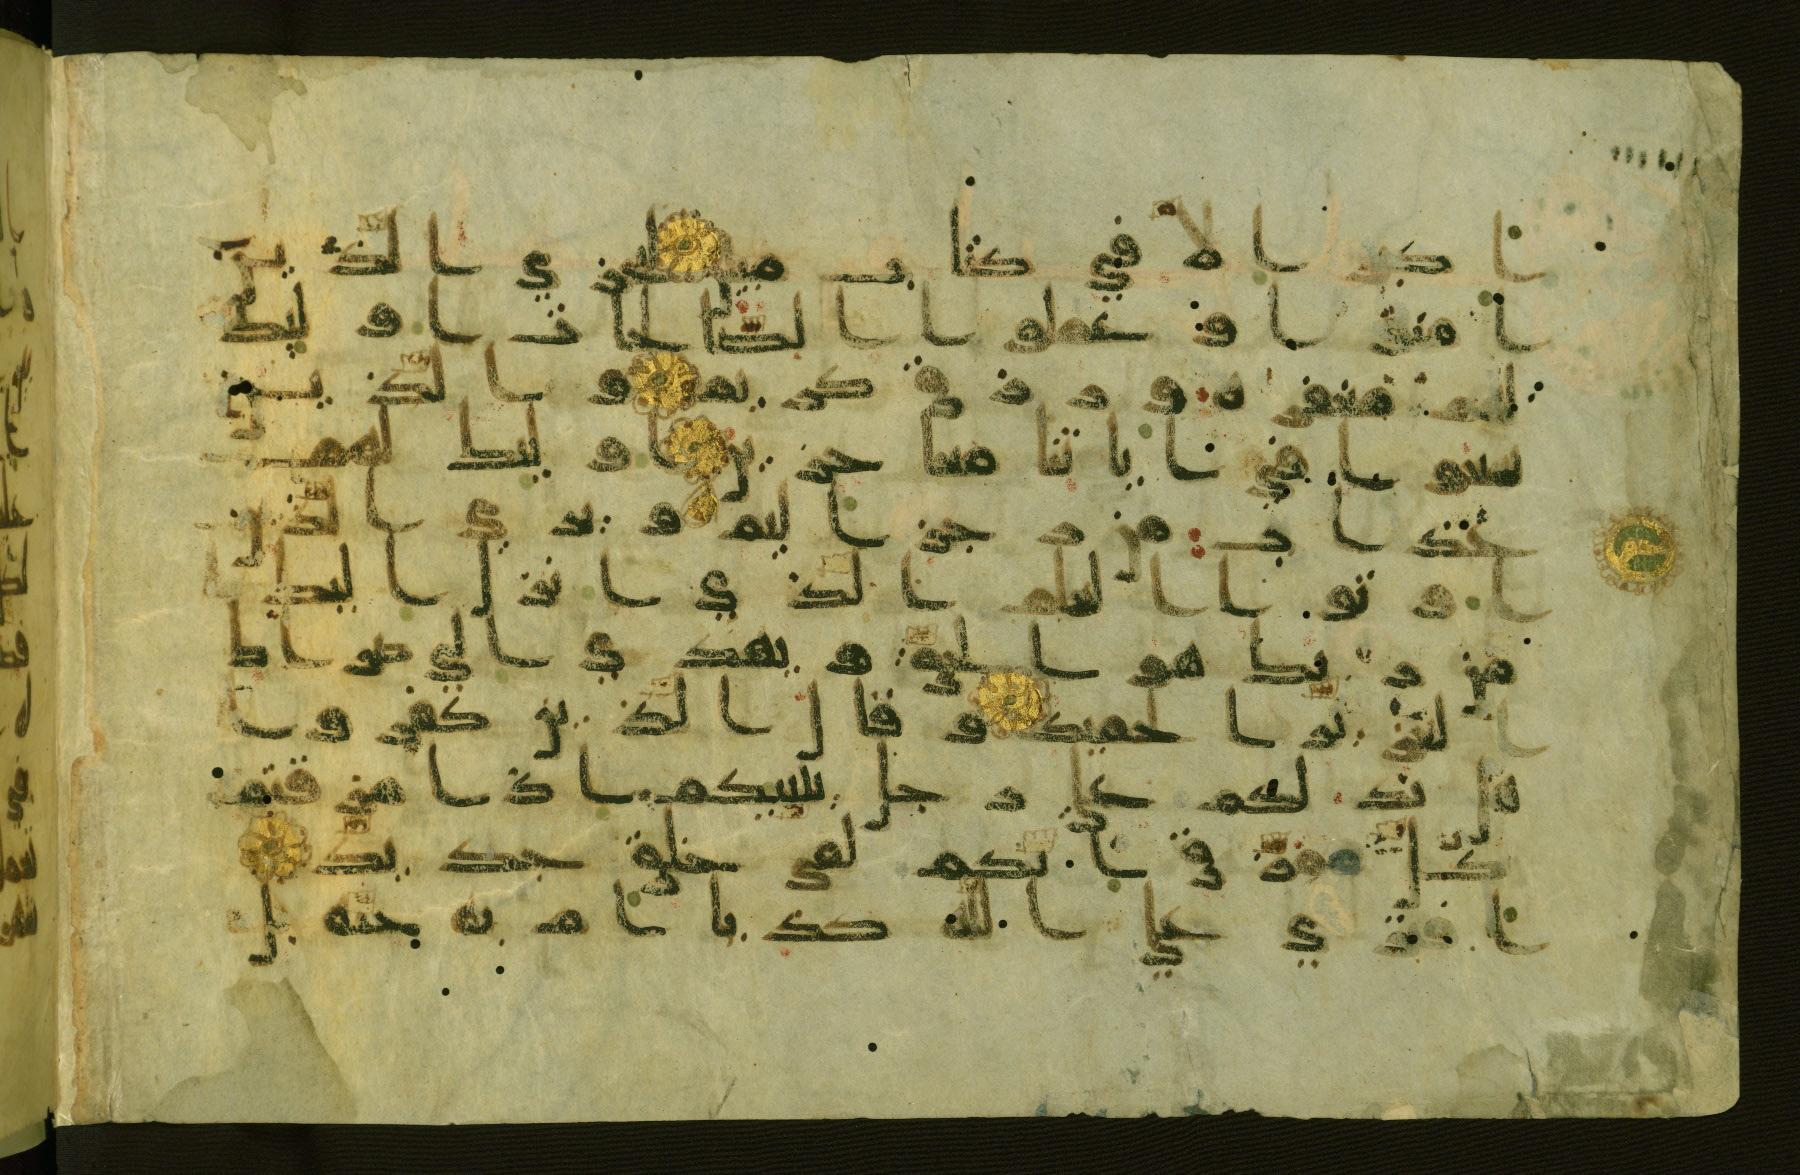 اكبر الا في كتاب مبين ليجزي الذين
امنوا وعملوا الصالحات اولئك
لهم مغفرة ورزق كريم والذين
سعو في اياتنا معاجزين اولئك لهم
عذاب من رجز اليم ويرى الذين
اوتوا العلم الذي انزل اليك
من ربك هو الحق ويهدي الى صراط
العزيز الحميد وقال الذين كفروا
هل ندلكم على رجل ينبئكم اذا مزقتم
كل ممزق انكم لفي خلق جديد
افترى على الله كذبا ام به جنة بل